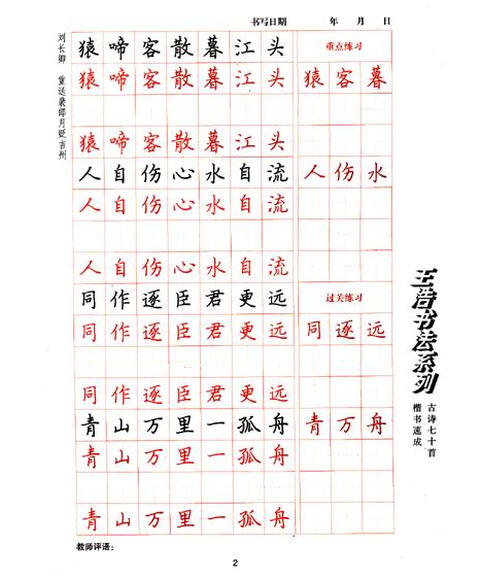 书写日期 年 月 日
刘长卿 重送裴郎中贬吉州
猿啼客散暮江头
重点练习
猿啼客散暮江头
猿客暮
猿啼客散暮江头
人自伤心水自流
人伤水
人自伤心水自流
人自伤心水自流
同作逐臣君更远
过关练习
同作逐臣君更远
同逐远
同作逐臣君更远
青山万里一孤舟
青万舟
青山万里一孤舟
青山万里一孤舟
王浩书法系列
古诗七十首
楷书速成
教师评语：
2